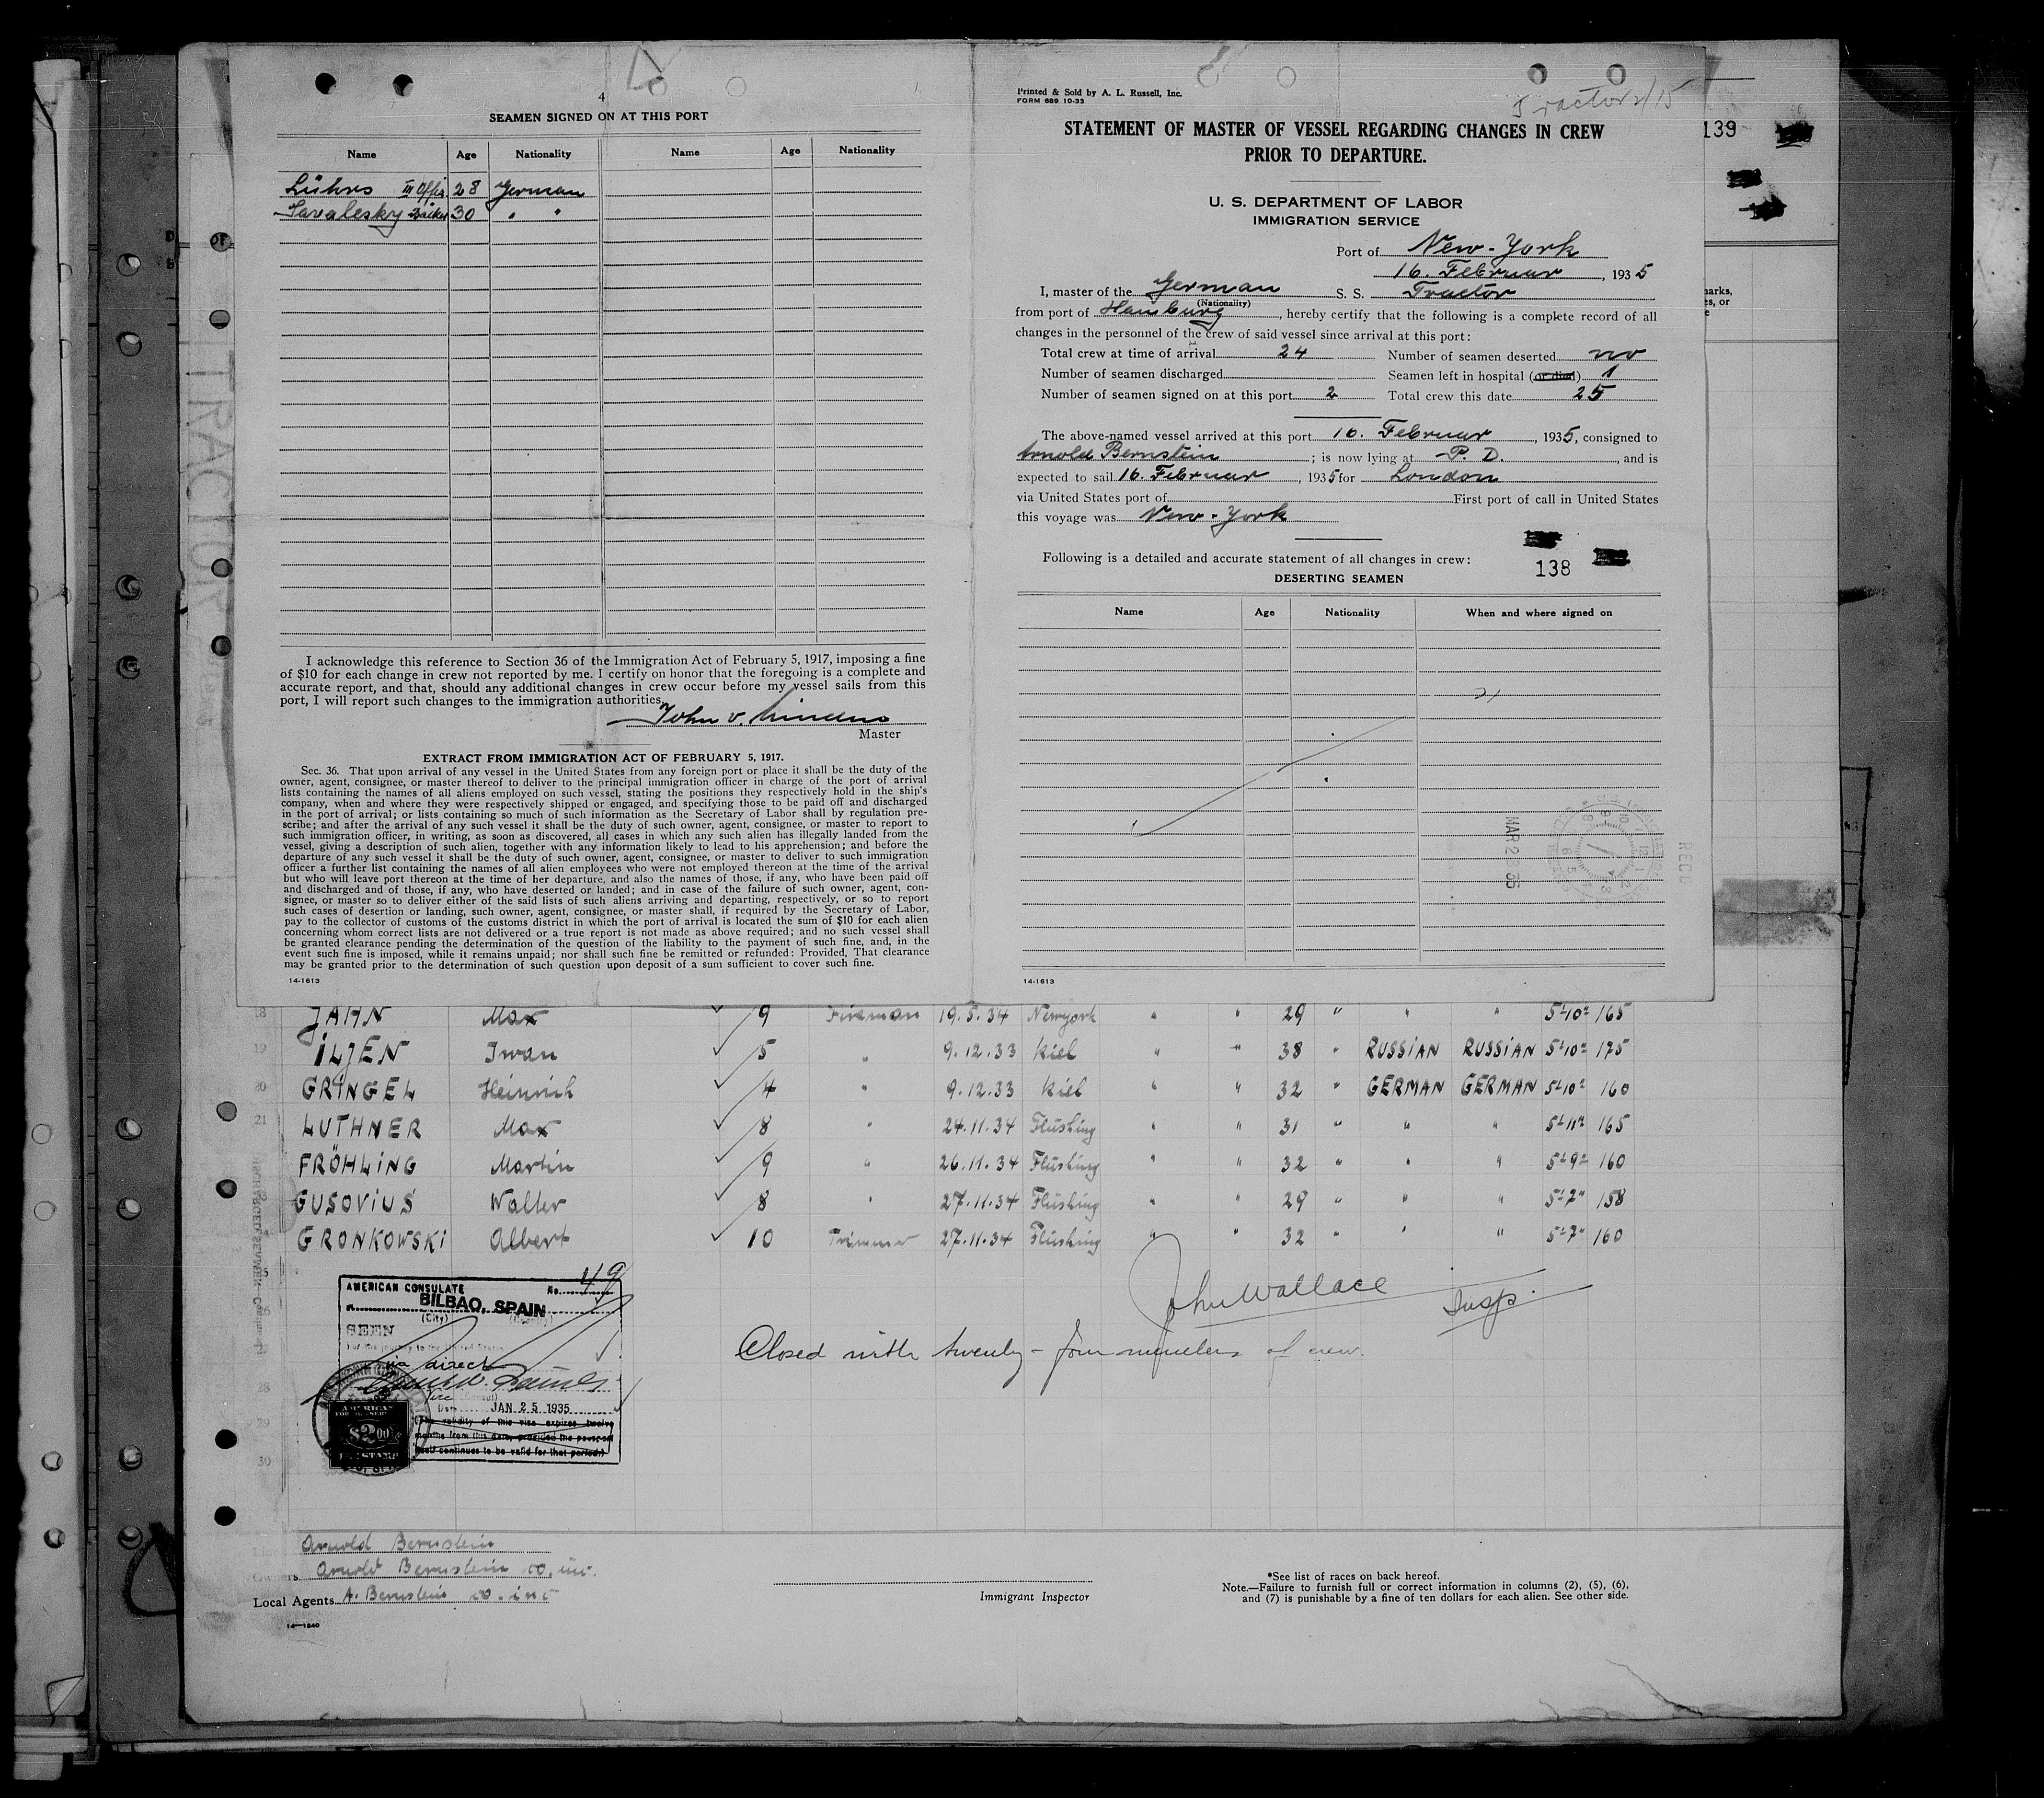 4
SEAMEN SIGNED ON AT THIS PORT
Name Age Nationality Name Age Nationality
Lührs III Offiz. 28 German
Savalesky Bäcker 30 " "
I acknowledge this reference to Section 36 of the Immigration Act of February 5, 1917, imposing a fine
of $10 for each change in crew not reported by me. I certify on honor that the foregoing is a complete and
accurate report, and that, should any additional changes in crew occur before my vessel sails from this
port, I will report such changes to the immigration authorities.
John v.
Master
EXTRACT FROM IMMIGRATION ACT OF FEBRUARY 5, 1917.
Sec. 36. That upon arrival of any vessel in the United States from any foreign port or place it shall be the duty of the
owner, agent, consignee, or master thereof to deliver to the principal immigration officer in charge of the port of arrival
lists containing the names of all aliens employed on such vessel, stating the positions they respectively hold in the ship's
company, when and where they were respectively shipped or engaged, and specifying those to be paid off and discharged
in the port of arrival; or lists containing so much of such information as the Secretary of Labor shall by regulation pre-
scribe; and after the arrival of any such vessel it shall be the duty of such owner, agent, consignee, or master to report to
such immigration officer, in writing, as soon as discovered, all cases in which any such alien has illegally landed from the
vessel, giving a description of such alien, together with any information likely to lead to his apprehension; and before the
departure of any such vessel it shall be the duty of such owner, agent, consignee, or master to deliver to such immigration
officer a further list containing the names of all alien employees who were not employed thereon at the time of the arrival
but who will leave port thereon at the time of her departure, and also the names of those, if any, who have been paid off
and discharged and of those, if any, who have deserted or landed; and in case of the failure of such owner, agent, con-
signee, or master so to deliver either of the said lists of such aliens arriving and departing, respectively, or so to report
such cases of desertion or landing, such owner, agent, consignee, or master shall, if required by the Secretary of Labor,
pay to the collector of customs of the customs district in which the port of arrival is located the sum of $10 for each alien
concerning whom correct lists are not delivered or a true report is not made as above required; and no such vessel shall
be granted clearance pending the determination of the question of the liability to the payment of such fine, and, in the
event such fine is imposed, while it remains unpaid; nor shall such fine be remitted or refunded: Provided, That clearance
may be granted prior to the determination of such question upon deposit of a sum sufficient to cover such fine.
14-1613
Printed & Sold by A. L. Russell, Inc.
FORM 689 10-33
Tractor 2/15
STATEMENT OF MASTER OF VESSEL REGARDING CHANGES IN CREW
PRIOR TO DEPARTURE.
139
U. S. DEPARTMENT OF LABOR
IMMIGRATION SERVICE
Port of New-York
16. Februar, 1935
I, master of the German S. S. Tractor
(Nationality)
from port of Hamburg, hereby certify that the following is a complete record of all
changes in the personnel of the crew of said vessel since arrival at this port:
Total crew at time of arrival 24 Number of seamen deserted no
Number of seamen discharged Seamen left in hospital (or died) 1
Number of seamen signed on at this port 2 Total crew this date 25
The above-named vessel arrived at this port 16. Februar, 1935, consigned to
Arnold Bernstein; is now lying at P. D., and is
expected to sail 16. Februar, 1935 for London
via United States port of First port of call in United States
this voyage was New-York
Following is a detailed and accurate statement of all changes in crew:
138
DESERTING SEAMEN
Name Age Nationality When and where signed on
MAR 28 35
RECD
14-1613
TRACTOR
18 JAHN Max 9 Fireman 19.5.34 Newyork " " 29 " " " 5'10" 165
19 ILJEN Iwan 5 " 9.12.33 Kiel " " 38 " RUSSIAN RUSSIAN 5'10" 175
20 GRINGEL Heinrich 4 " 9.12.33 Kiel " " 32 " GERMAN GERMAN 5'10" 160
21 LUTHNER Max 8 " 24.11.34 Flushing " " 31 " " " 5'11" 165
FRÖHLING Martin 9 " 26.11.34 Flushing " " 32 " " " 5'9" 160
GUSOVIUS Walter 8 " 27.11.34 Flushing " " 29 " " " 5'7" 158
GRONKOWSKI Albert 10 Trimmer 27.11.34 Flushing " " 32 " " " 5'7" 160
AMERICAN CONSULATE No. 49
BILBAO, SPAIN
(City) (Country)
SEEN
For the journey to the United States
via direct
Date JAN 25 1935
(The validity of this visa expires twelve
months from this date, provided the passport
itself continues to be valid for that period)
AMERICAN
$2.00
John Wallace Insp.
Closed with twenty-four members of crew.
28
29
30
Arnold Bernstein
Owners Arnold Bernstein co. inc.
Local Agents A. Bernstein co. inc
14-1240
Immigrant Inspector
*See list of races on back hereof.
Note.—Failure to furnish full or correct information in columns (2), (5), (6),
and (7) is punishable by a fine of ten dollars for each alien. See other side.